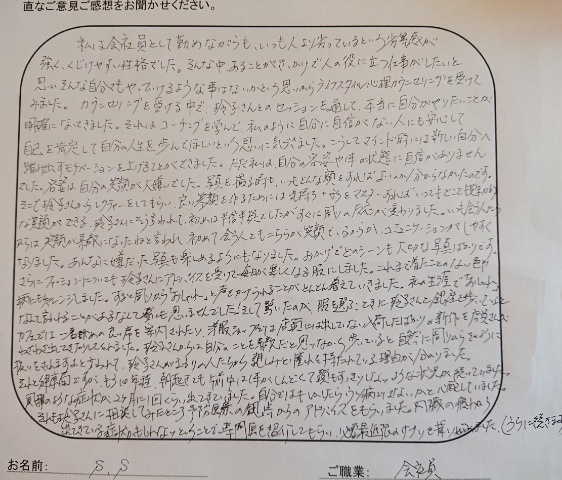 直なご意見ご感想をお聞かせください。
私は会社員として勤めながらも、いつも人より劣っているという劣等感が
強く、くじけやすい性格でした。そんな中あることがきっかけで人の役に立つ仕事がしたいと
思いそんな自分でもやっていけるような事はないかという思いからライフスタイル心理カウンセリングを受けて
みました。カウンセリングを受ける中で、玲子さんとのセッションを通して、本当に自分がやりたいことが
明確になってきました。それはコーチングを学んで私のように自分に自信がない人にも安心して
自己を肯定して自分の人生を歩んでほしいという思いに気づきました。こうしてマインド面には新しい自分へ
踏み出すモチベーションを上げることができました。ただ私は、自分の容姿や体の状態に自信がありません
でした。容姿は自分の笑顔が大嫌いでした。写真を撮る時も、いったどんな顔をすればよいか分からなかったのです。
そこで玲子さんからレクチャーをしてもらい、良い笑顔を作るためには
な笑顔ができる、玲子さんにそう言われて、初めは半信半疑でしたがすぐに周りの反応が変わりました。いつも会う人たち
からは笑顔が素敵になったねと言われ、初めて会う人でもこちらが笑顔でいるからか、コミュニケーションがしやすく
なりました。あんなに嫌だった写真も楽しめるようにもなりました。おかげでどのシーンも大切な写真ばかりです。
さらにファッションについても玲子さんにアドバイスを受けて毎日が楽しくなる服にしました。これまで着たことのない
もチャレンジしました。すると周りからおしゃれ〜と声をかけられることがどんどん増えていきました。私の生涯で「おしゃれ」
なんて言われることがあるなんて夢にも思いませんでした
カフェでは一番眺めの良い席を案内されたり、洋服ショップでは店頭には出していない入荷したばかりの新作を店員さんが
わざわざ出てきたりしました。玲子さんからは自分のことを素敵だと思いながら歩いていると自然に周りからそのように
扱いをされますよと言われて、玲子さんがまわりの人たちから親しみと憧れを持たれている理由が分かりました。
それと体調面ですが、もう10年程、朝起きても背中に
風邪のような症状が、2ヶ月に1回くらい出てきていました。自分ではもしかしたらうつ病ではないか、と心配していました。
それも玲子さんに相談してみたところ予防医療の観点からのアドバイスをもらいました。内臓の疲れから
出てきている症状かもしれないということで、専門医を紹介してもらい、
(うらに続きます)
お名前： S.S
ご職業： 会社員